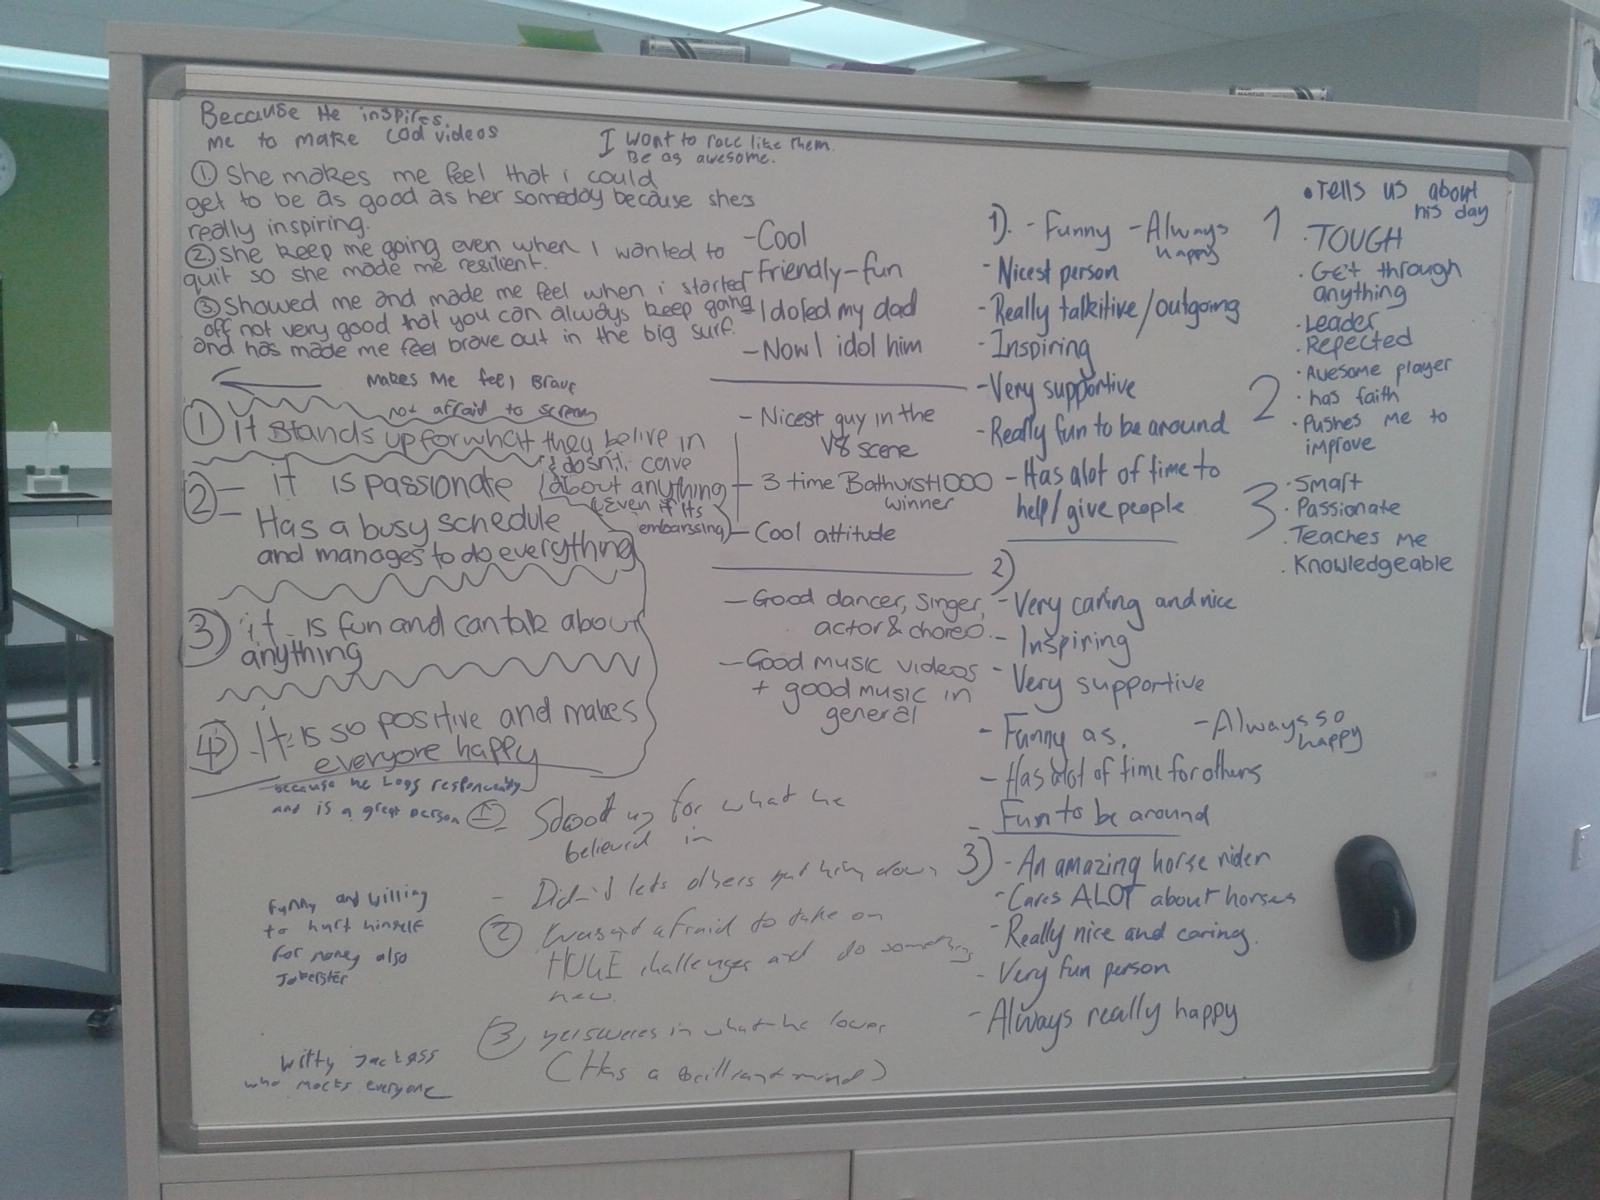 Because He inspires
me to make cod videos
I want to race like them.
Be as awesome.
① She makes me feel that i could
get to be as good as her someday because shes
really inspiring.
② She keep me going even when I wanted to
quit so she made me resilient.
③ Showed me and made me feel when i started
off not very good that you can always keep going
and has made me feel brave out in the big surf.
Makes Me feel Brave
not afraid to scream
① it stands up for what they belive in
& dosn't care
about anything
(Even if its
embarssing)
② - it is passionate
Has a busy schedule
and manages to do everything
③ it is fun and can talk about
anything
④ It is so positive and makes
everyone happy
because he
and is a great person
funny and willing
to hurt himself
for money also
Jokerster
witty Jackass
who mocks everyone
- Cool
- Friendly - fun
- Idoled my dad
- Now I idol him
- Nicest guy in the
V8 scene
- 3 time Bathurst 1000
winner
- Cool attitude
- Good dancer, singer,
actor & choreo.
- Good music videos
+ good music in
general
① Stood up for what he
believed in
- Did-t lets others put him down
② wasnt afraid to take on
HUGE challenges and do something
new.
③ in what he loves
(Has a brilliant mind)
1). - Funny - Always
happy
- Nicest person
- Really talkitive/outgoing
- Inspiring
- Very supportive
- Really fun to be around
- Has alot of time to
help/give people
2)
- Very caring and nice
- Inspiring
- Very supportive
- Funny as. - Always so
happy
- Has alot of time for others
- Fun to be around
3) - An amazing horse rider
- Cares ALOT about horses
- Really nice and caring.
- Very fun person
- Always really happy
• Tells us about
his day
1
• TOUGH
• Get through
anything
• Leader
• Repected
2
• Awesome player
• has faith
• Pushes me to
improve
3
• Smart
• Passionate
• Teaches me
• Knowledgeable